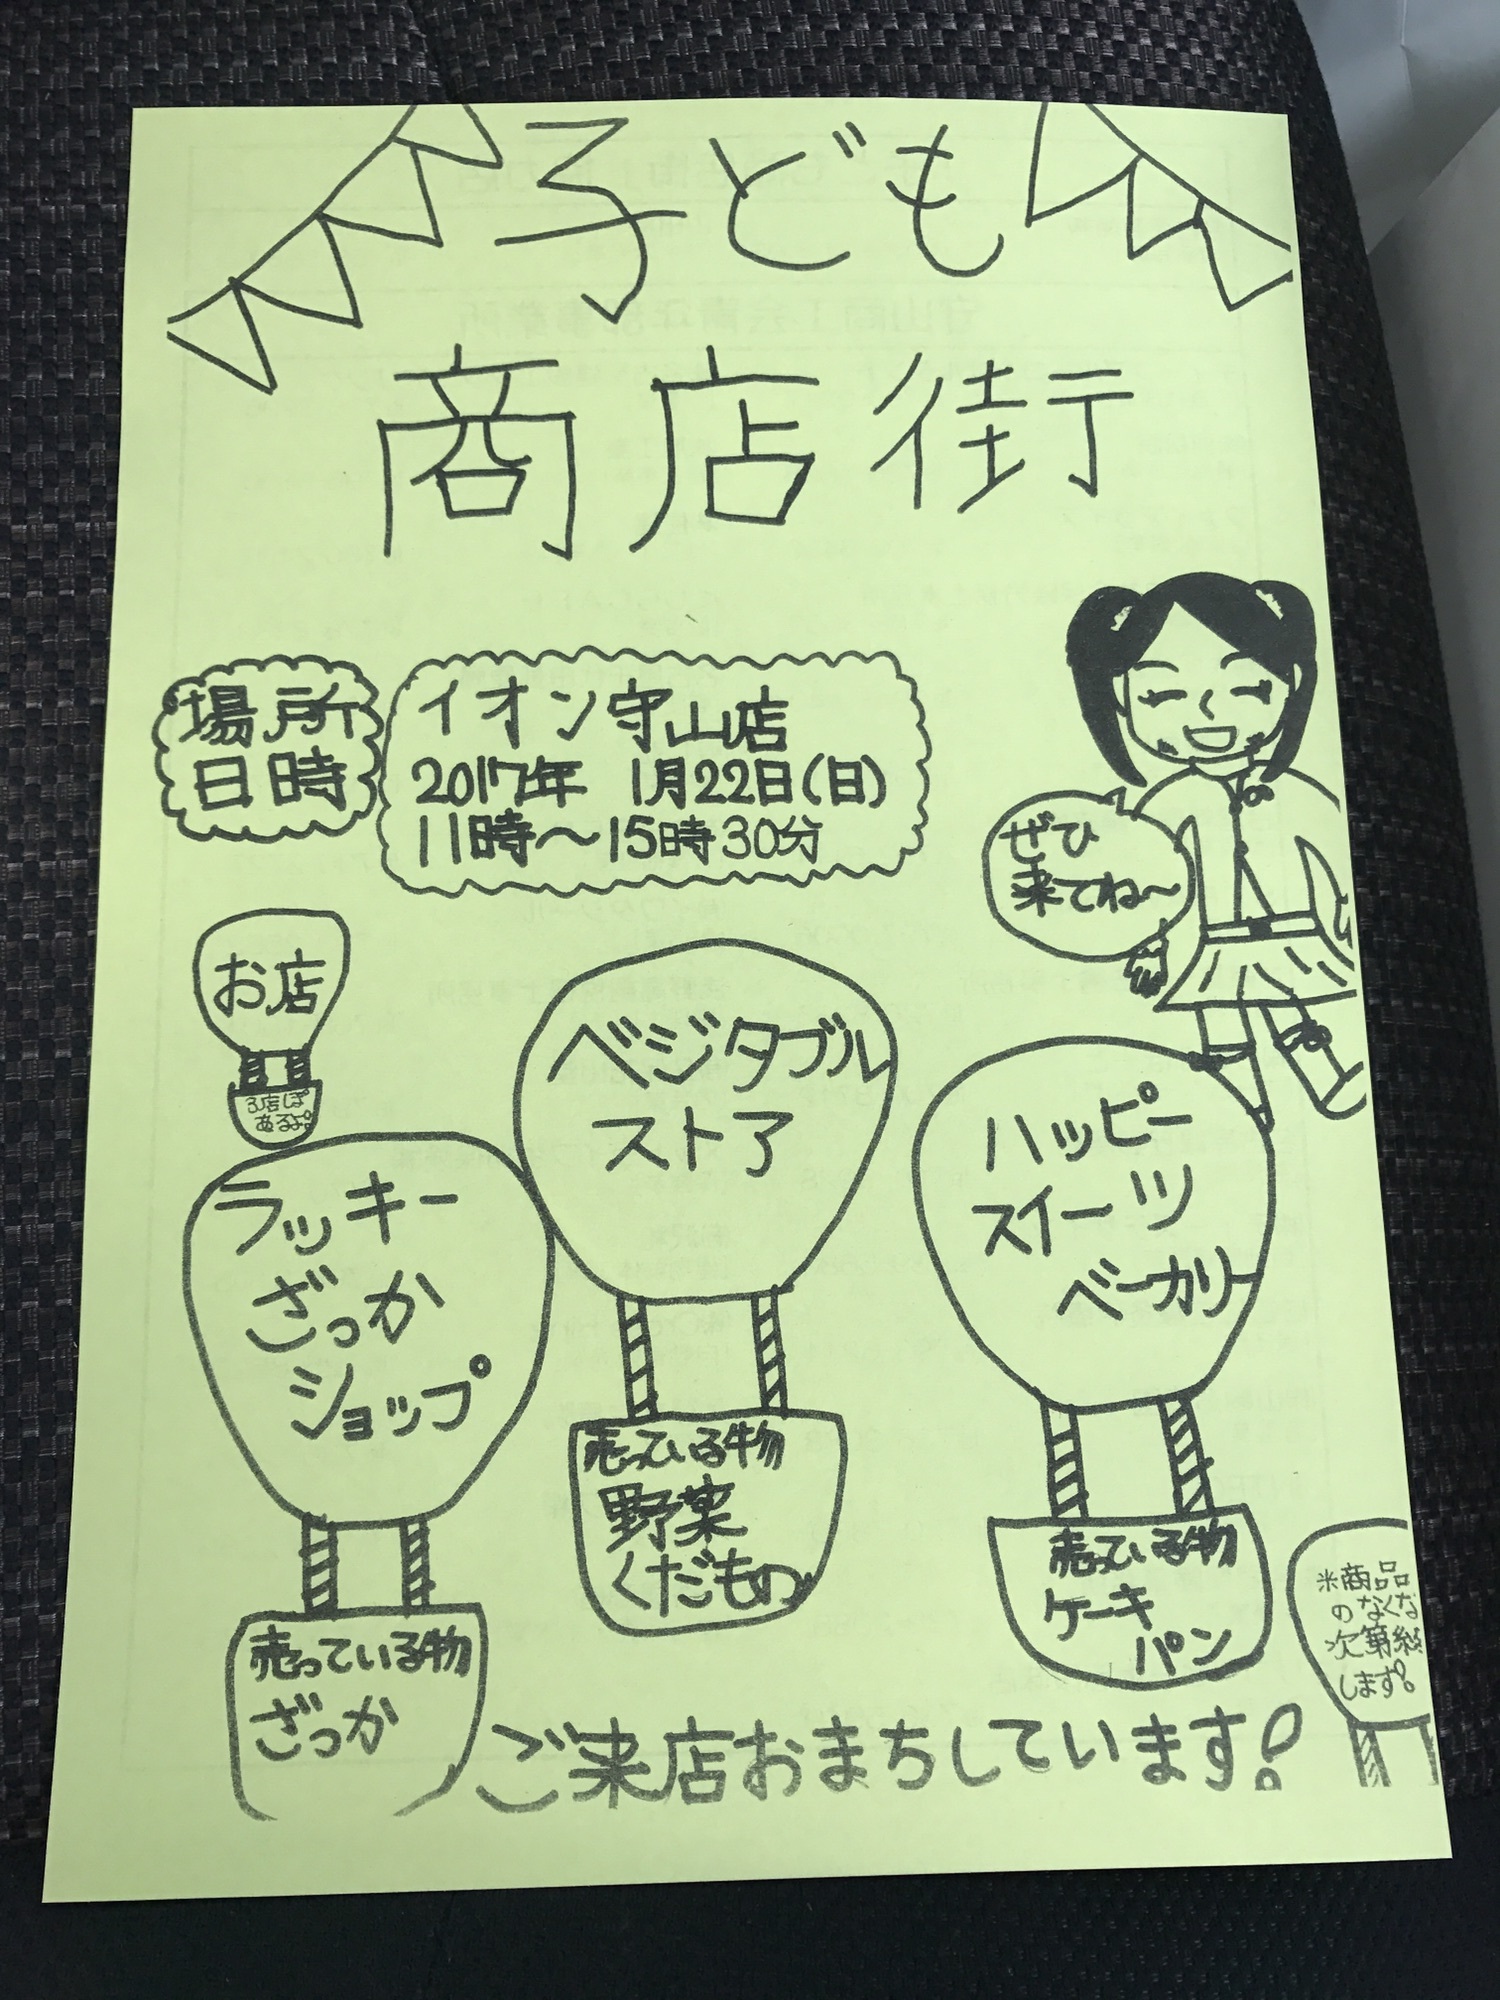 子ども
商店街
場所
日時
イオン守山店
2017年 1月22日(日)
11時〜15時30分
ぜひ
来てね〜
お店
3店ぽ
あるよ。
ベジタブル
ストア
売っている物
野菜
くだもの
ハッピー
スイーツ
ベーカリー
売っている物
ケーキ
パン
ラッキー
ざっか
ショップ
売っている物
ざっか
※商品
のなくな
次第終
します。
ご来店おまちしています!